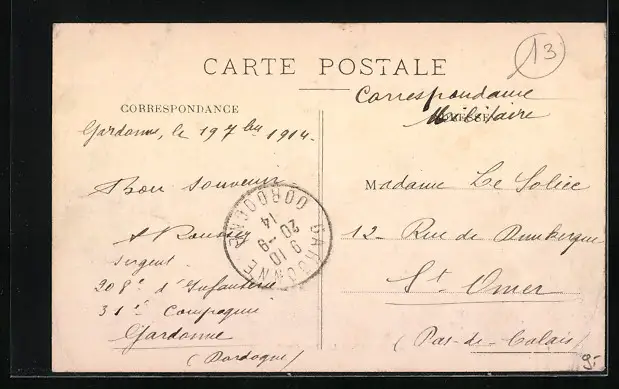 13
CARTE POSTALE
Correspondance
Militaire
CORRESPONDANCE
Gardonne, le 19 7bre 1914.
Bon souvenir
Sergent
208e d'Infanterie
31e Compagnie
Gardonne
(Dordogne)
GARDONNE DORDOGNE
9 10
20-9
14
Madame Le
12 - Rue de Dunkerque
St Omer
(Pas-de-Calais)